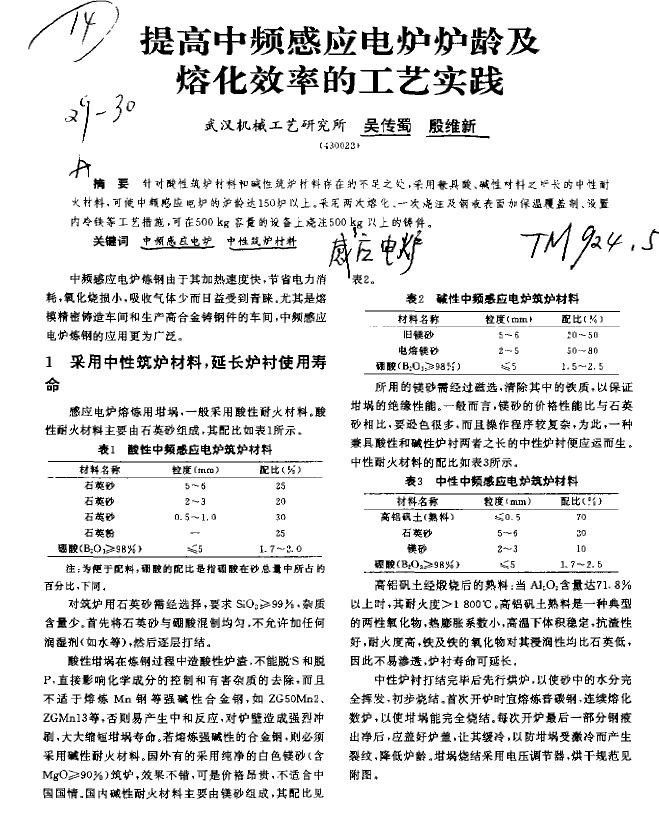 14
提高中频感应电炉炉龄及
熔化效率的工艺实践
29-30
武汉机械工艺研究所 吴传蜀 殷维新
(430022)
A
摘 要 针对酸性筑炉材料和碱性筑炉材料存在的不足之处,采用兼具酸、碱性材料之所长的中性耐
火材料,可使中频感应电炉的炉龄达150炉以上。采用两次熔化、一次浇注及钢液表面加保温覆盖剂、设置
内冷铁等工艺措施,可在500 kg 容量的设备上浇注500 kg 以上的铸件。
关键词 中频感应电炉 中性筑炉材料
感应电炉
TM924.5
中频感应电炉炼钢由于其加热速度快,节省电力消
耗,氧化烧损小,吸收气体少而日益受到青睐。尤其是熔
模精密铸造车间和生产高合金铸钢件的车间,中频感应
电炉炼钢的应用更为广泛。
1 采用中性筑炉材料,延长炉衬使用寿
命
感应电炉熔炼用坩埚,一般采用酸性耐火材料。酸
性耐火材料主要由石英砂组成,其配比如表1所示。
表1 酸性中频感应电炉筑炉材料
材料名称 粒度(mm) 配比(%)
石英砂 5~6 25
石英砂 2~3 20
石英砂 0.5~1.0 30
石英粉 — 25
硼酸(B₂O₃≥98%) ≤5 1.7~2.0
注:为便于配料,硼酸的配比是指硼酸在砂总量中所占的
百分比,下同。
对筑炉用石英砂需经选择,要求 SiO₂≥99%,杂质
含量少。首先将石英砂与硼酸混制均匀,不允许加任何
润湿剂(如水等),然后逐层打结。
酸性坩埚在炼钢过程中造酸性炉渣,不能脱S和脱
P,直接影响化学成分的控制和有害杂质的去除,而且
不适于熔炼 Mn 钢等强碱性合金钢,如 ZG50Mn2、
ZGMn13等,否则易产生中和反应,对炉壁造成强烈冲
刷,大大缩短坩埚寿命。若熔炼强碱性的合金钢,则必须
采用碱性耐火材料。国外有的采用纯净的白色镁砂(含
MgO≥90%)筑炉,效果不错,可是价格昂贵,不适合中
国国情。国内碱性耐火材料主要由镁砂组成,其配比见
表2。
表2 碱性中频感应电炉筑炉材料
材料名称 粒度(mm) 配比(%)
旧镁砂 5~6 20~50
电熔镁砂 2~5 50~80
硼酸(B₂O₃≥98%) ≤5 1.5~2.5
所用的镁砂需经过磁选,清除其中的铁质,以保证
坩埚的绝缘性能。一般而言,镁砂的价格性能比与石英
砂相比,要逊色很多,而且操作程序较复杂,为此,一种
兼具酸性和碱性炉衬两者之长的中性炉衬便应运而生。
中性耐火材料的配比如表3所示。
表3 中性中频感应电炉筑炉材料
材料名称 粒度(mm) 配比(%)
高铝矾土(熟料) ≤0.5 70
石英砂 5~6 20
镁砂 2~3 10
硼酸(B₂O₃≥98%) ≤5 1.7~2.5
高铝矾土经煅烧后的熟料:当 Al₂O₃含量达71.8%
以上时,其耐火度>1 800℃。高铝矾土熟料是一种典型
的两性氧化物,热膨胀系数小,高温下体积稳定,抗渣性
好,耐火度高,铁及铁的氧化物对其浸润性均比石英低,
因此不易渗透,炉衬寿命可延长。
中性炉衬打结完毕后先行烘炉,以使砂中的水分完
全挥发,初步烧结。首次开炉时宜熔炼普碳钢,连续熔化
数炉,以使坩埚能完全烧结。每次开炉最后一部分钢液
出净后,应盖好炉盖,让其缓冷,以防坩埚受激冷而产生
裂纹,降低炉龄。坩埚烧结采用电压调节器,烘干规范见
附图。